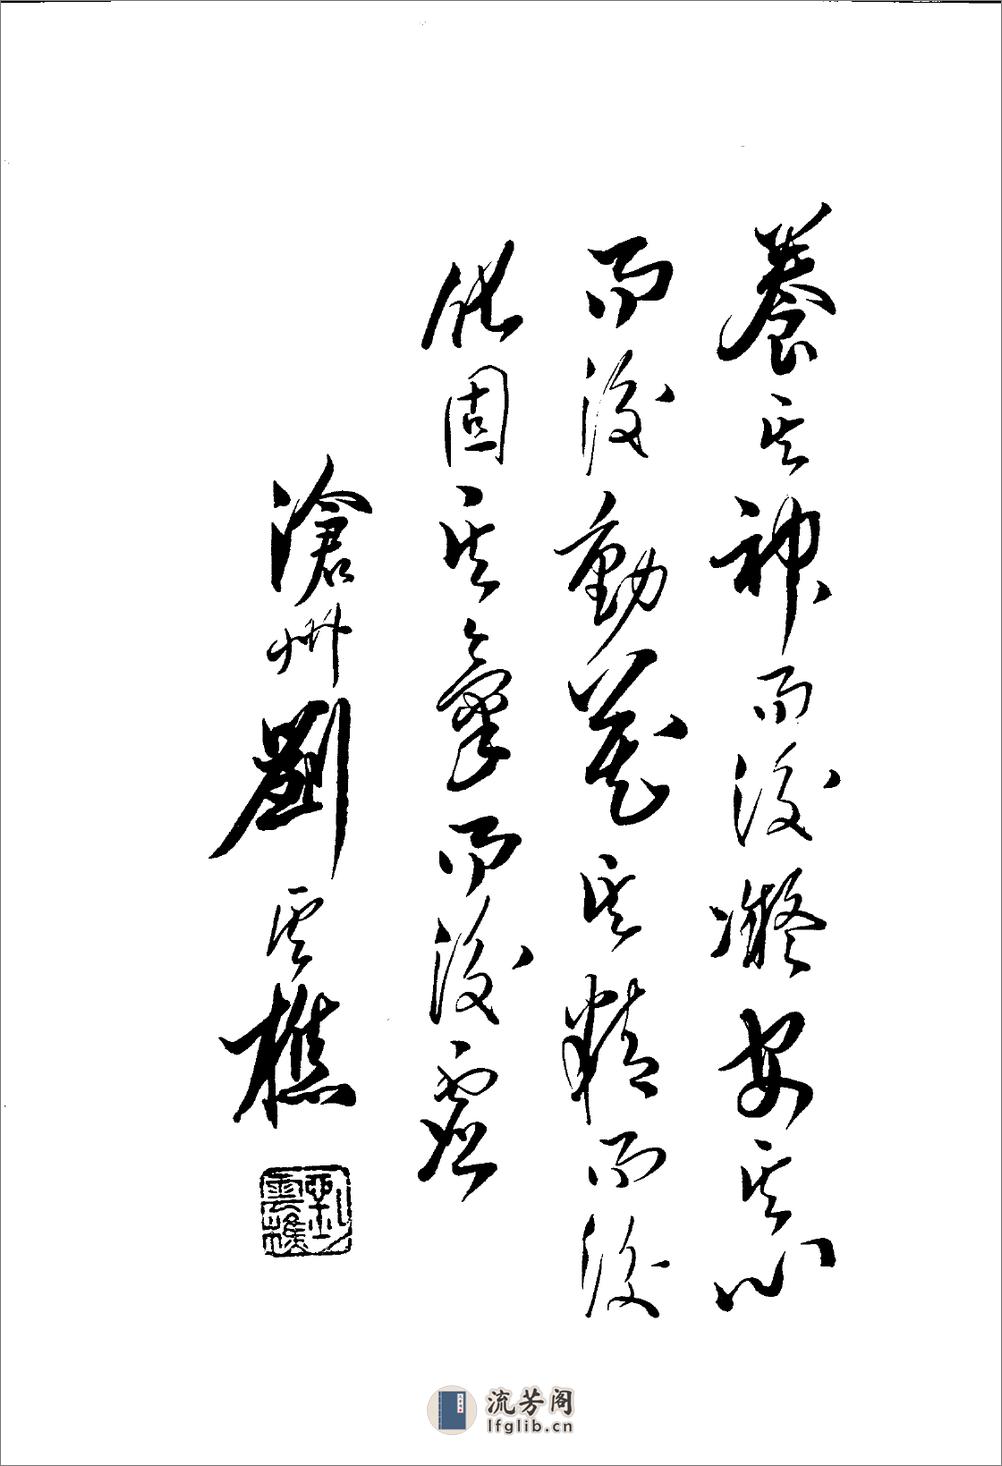 養其神而後凝安其心
而後動養其精而後
化固其氣而後虛
滄州劉雲樵
劉雲樵
流芳阁
lfglib.cn